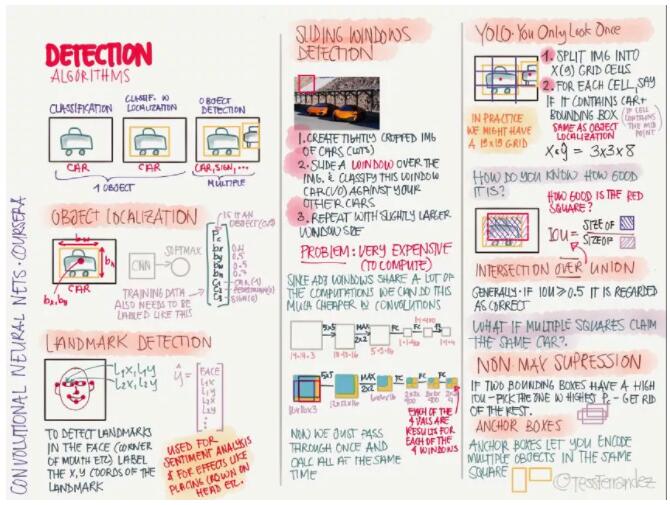 CONVOLUTIONAL NEURAL NETS · COURSERA
DETECTION
ALGORITHMS
CLASSIFICATION
CLASSIF. W
LOCALIZATION
OBJECT
DETECTION
CAR
CAR
CAR, SIGN, ...
1 OBJECT
MULTIPLE
OBJECT LOCALIZATION
IS IT AN
OBJECT
CNN
SOFTMAX
TRAINING DATA
ALSO NEEDS TO BE
LABELED LIKE THIS
CAR
LANDMARK DETECTION
FACE
TO DETECT LANDMARKS
IN THE FACE (CORNER
OF MOUTH ETC) LABEL
THE X,Y COORDS OF THE
LANDMARK
USED FOR
SENTIMENT ANALYSIS
& FOR EFFECTS LIKE
PLACING CROWN ON
HEAD ETC.
SLIDING WINDOWS
DETECTION
1. CREATE TIGHTLY CROPPED IMG
OF CARS (CUTS)
2. SLIDE A WINDOW OVER THE
IMG. & CLASSIFY THIS WINDOW
CAR(1/0) AGAINST YOUR
OTHER CARS
3. REPEAT WITH SLIGHTLY LARGER
WINDOW SIZE
PROBLEM: VERY EXPENSIVE
(TO COMPUTE)
SINCE ADJ WINDOWS SHARE A LOT OF
THE COMPUTATIONS WE CAN DO THIS
MUCH CHEAPER BY CONVOLUTIONS
EACH OF
THE 4 VALS ARE
RESULTS FOR
EACH OF THE
4 WINDOWS
NOW WE JUST PASS
THROUGH ONCE AND
CALC ALL AT THE SAME
TIME
YOLO · You Only Look Once
1. SPLIT IMG INTO
X(9) GRID CELLS
2. FOR EACH CELL, SAY
IF IT CONTAINS CAR +
BOUNDING BOX
(IF CELL
CONTAINS
THE MID
POINT)
IN PRACTICE
WE MIGHT HAVE
A 19x19 GRID
SAME AS OBJECT
LOCALIZATION
3x3x8
HOW DO YOU KNOW HOW GOOD
IT IS?
HOW GOOD IS THE RED
SQUARE?
IOU =
SIZE OF
SIZE OF
INTERSECTION OVER UNION
GENERALLY · IF IOU ≥ 0.5 IT IS REGARDED
AS CORRECT
WHAT IF MULTIPLE SQUARES CLAIM
THE SAME CAR?.
NON-MAX SUPPRESSION
IF TWO BOUNDING BOXES HAVE A HIGH
IOU - PICK THE ONE W HIGHEST Pc - GET RID
OF THE REST.
ANCHOR BOXES
ANCHOR BOXES LET YOU ENCODE
MULTIPLE OBJECTS IN THE SAME
SQUARE
@TessFerrandez